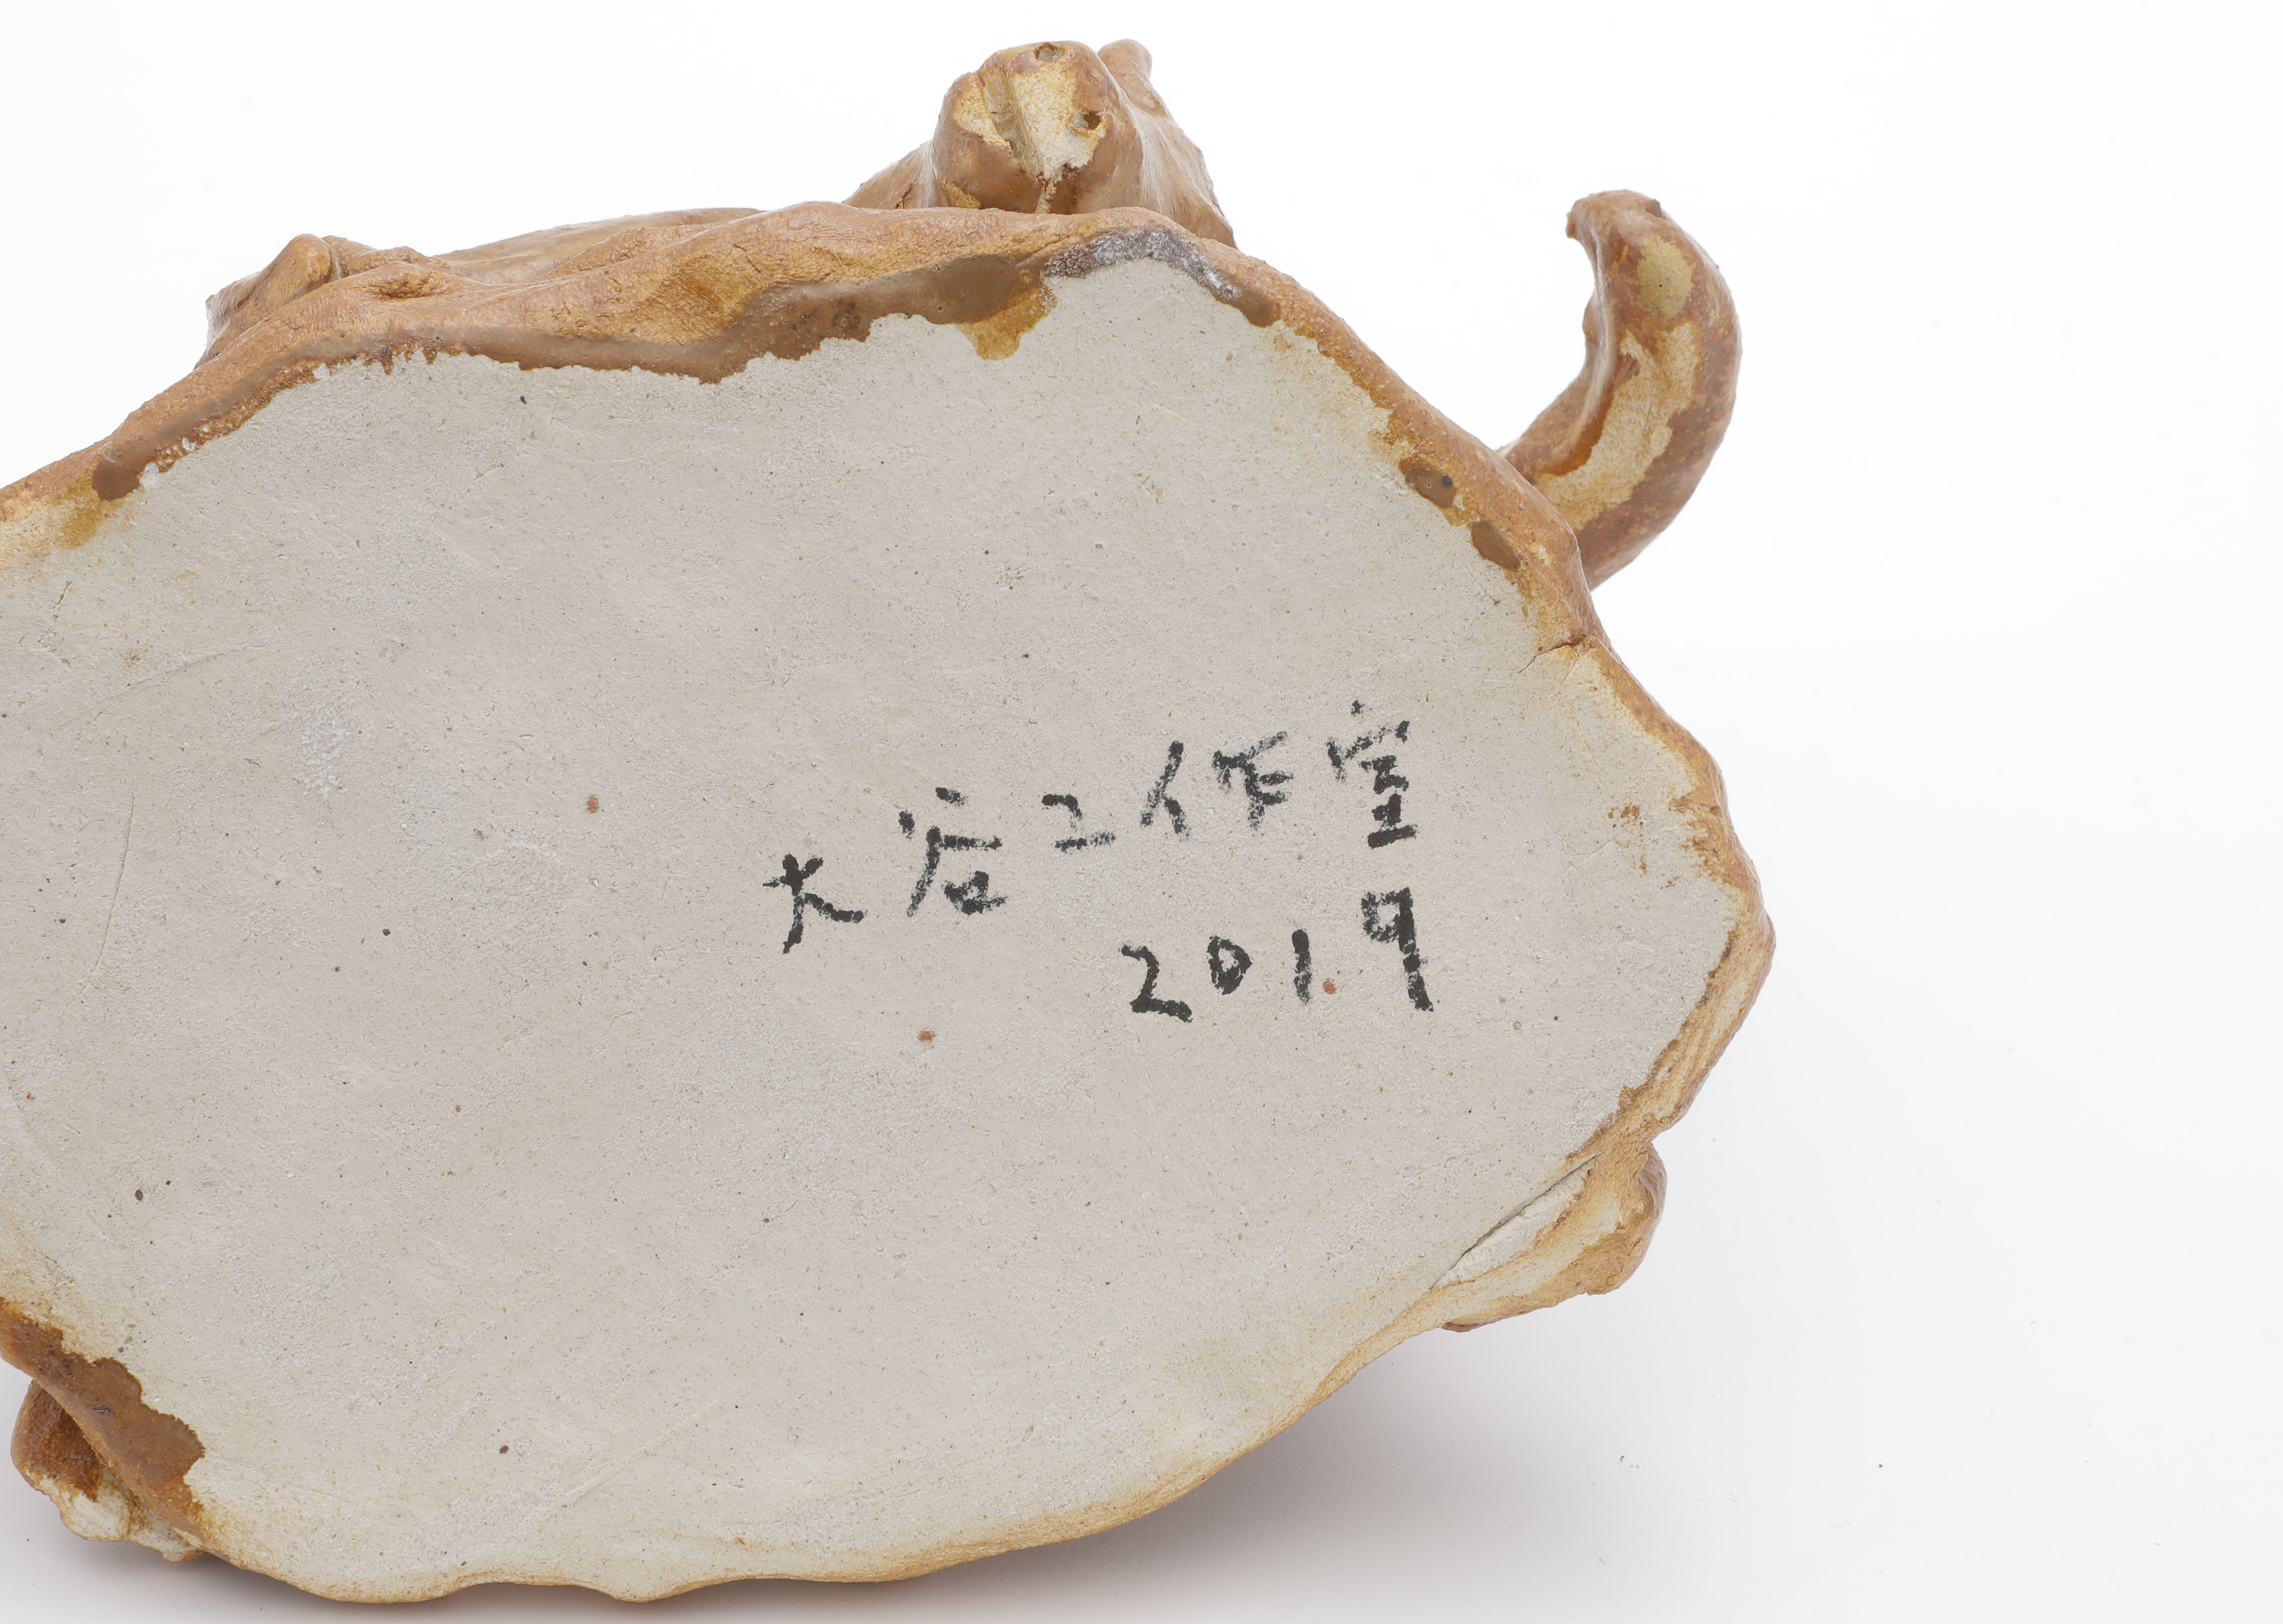 大谷工作室
2019